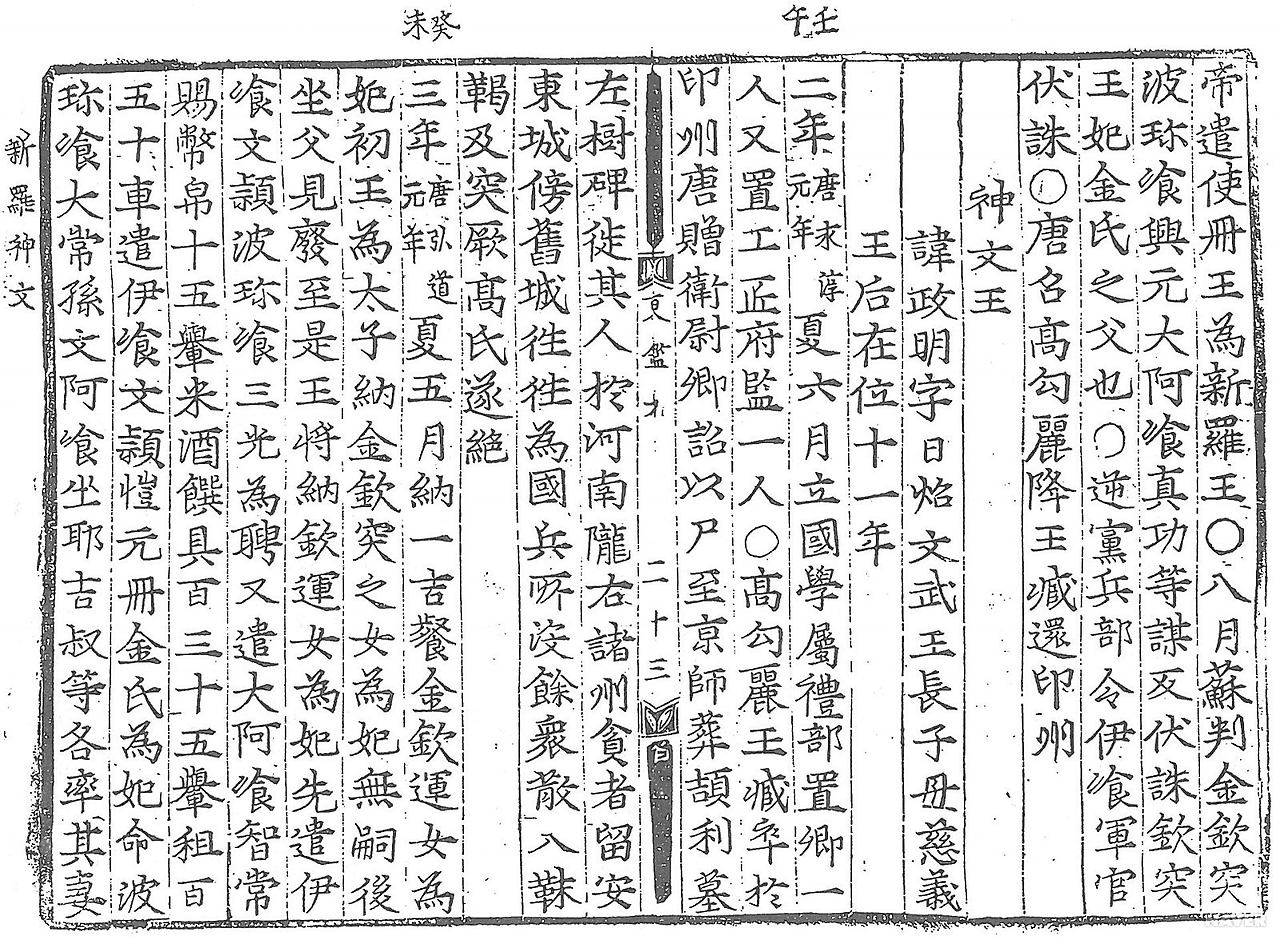 壬午
癸未
帝遣使冊王為新羅王○八月蘇判金欽突
波珎飡興元大阿飡真功等謀叛伏誅欽突
王妃金氏之父也○逆黨兵部令伊飡軍官
伏誅○唐召髙勾麗降王臧還印州
神文王
諱政明字日炤文武王長子毋慈義
王后在位十一年
二年唐永淳元年夏六月立國學屬禮部置卿一
人又置工匠府監一人○髙勾麗王臧卒於
印州唐贈衛尉卿詔以尸至京師葬頡利墓
史鑑九
二十三
左樹碑徙其人於河南隴右諸州貧者留安
東城傍舊城徃徃為國兵所沒餘衆散入靺
鞨及突厥髙氏遂絕
三年唐弘道元年夏五月納一吉飡金欽運女為
妃初王為太子納金欽突之女為妃無嗣後
坐父見廢至是王将納欽運女為妃先遣伊
飡文頴波珎飡三光為聘又遣大阿飡智常
賜幣帛十五轝米酒饌具百三十五轝租百
五十車遣伊飡文頴愷元冊金氏為妃命波
珎飡大常孫文阿飡坐耶吉叔等各率其妻
新羅神文